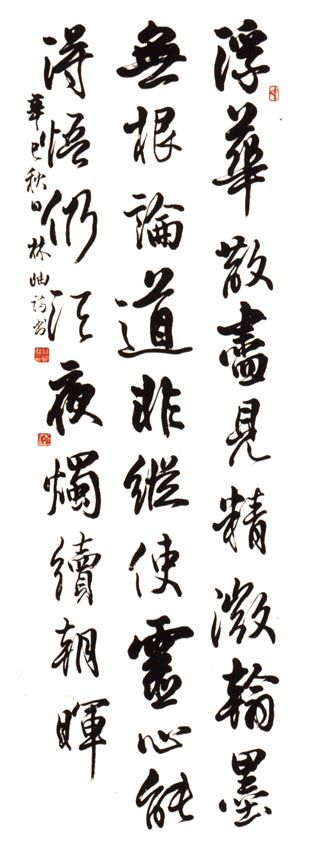 浮華散盡見精微翰墨
無根論道非縱使靈心能
得悟仍須夜燭續朝暉
辛巳秋日林岫詩書